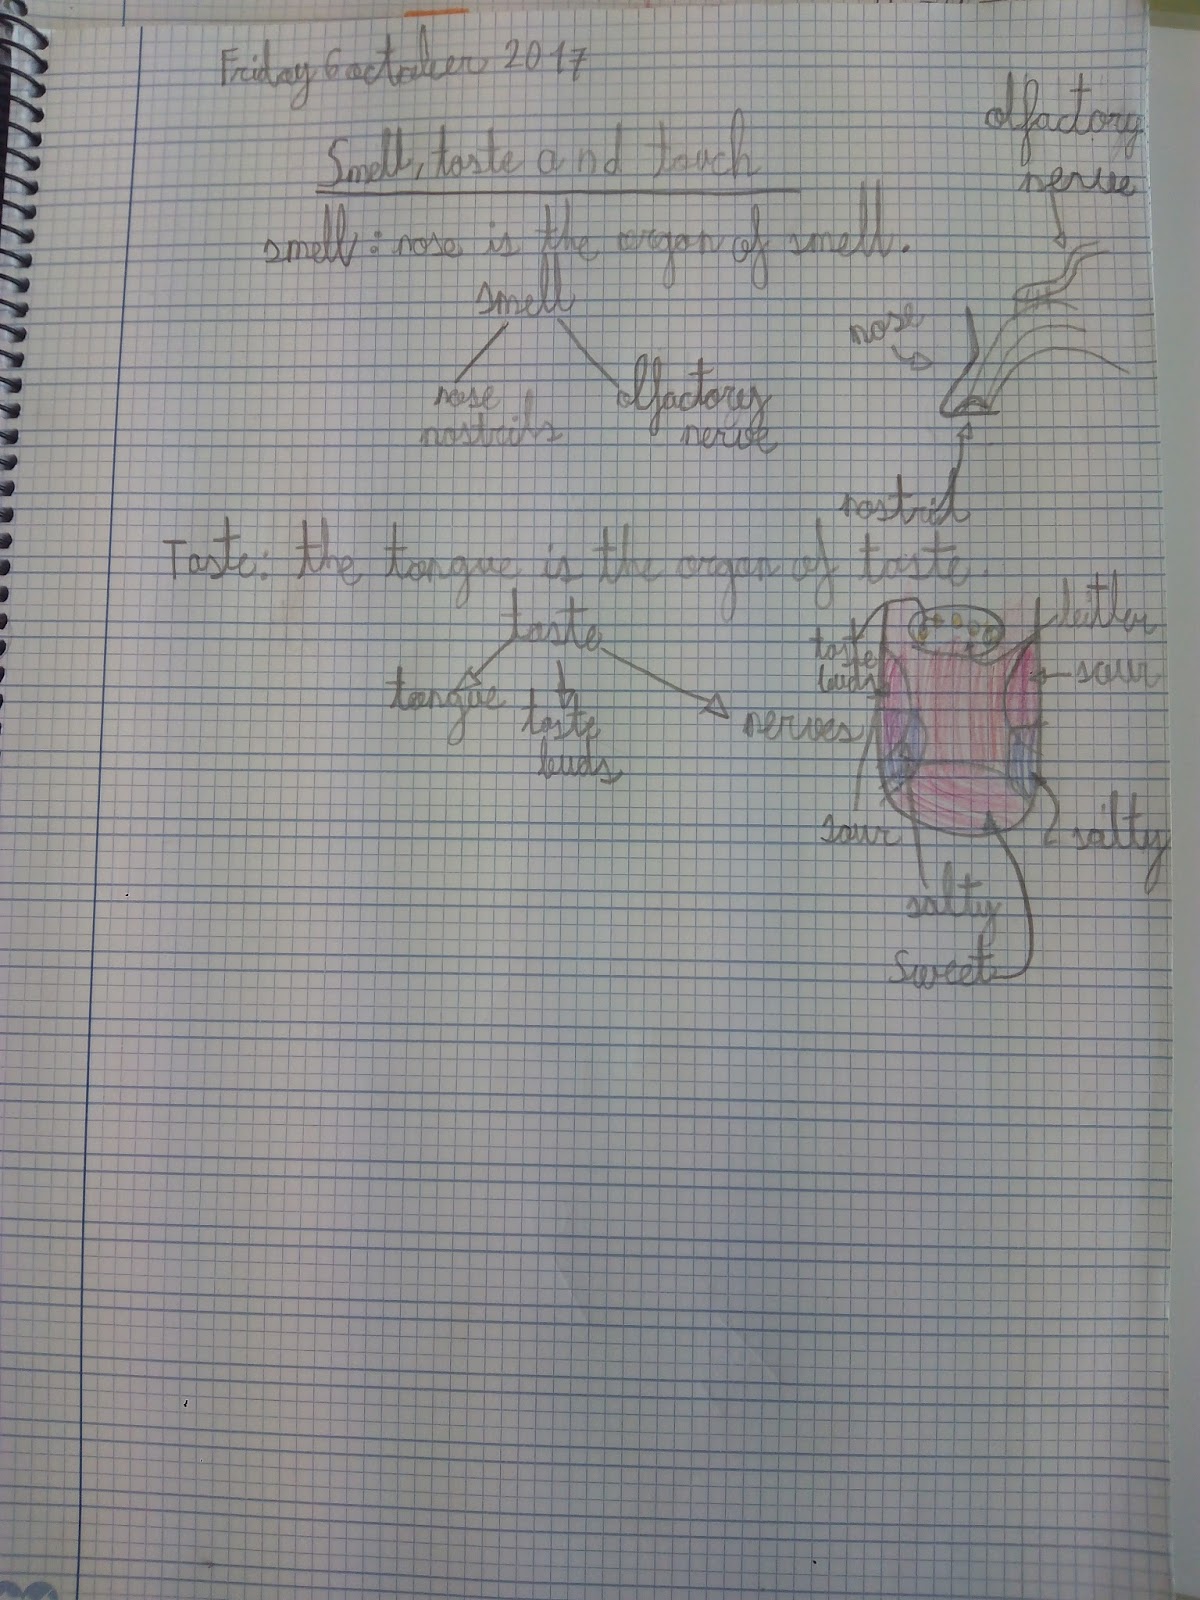 Friday 6 october 2017
Smell, taste and touch
olfactory
nerve
smell: nose is the organ of smell.
smell
nose
nostrils
olfactory
nerve
nose
nostril
Taste: the tongue is the organ of taste.
taste
tongue
taste
buds
nerves
taste
buds
bitter
sour
sour
salty
salty
sweet